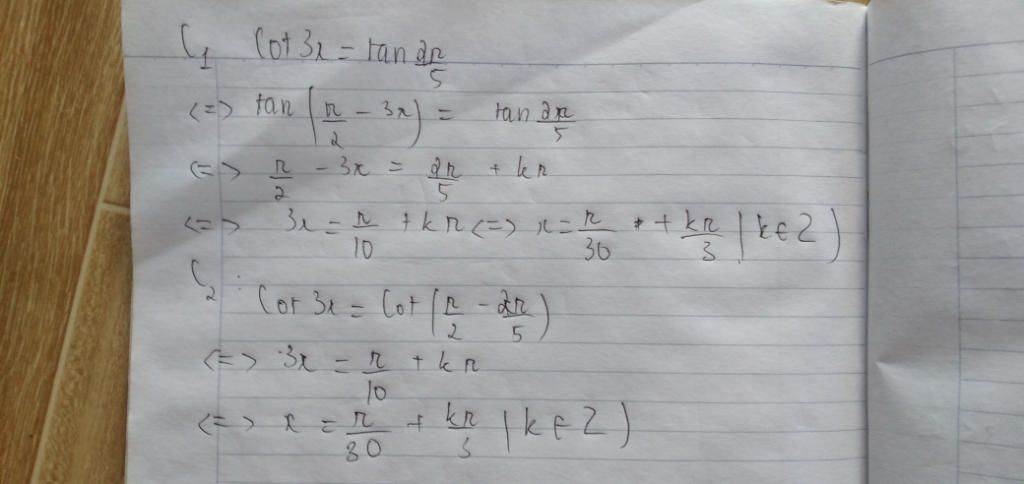 C1 Cot 3x = tan 2π/5
<=> tan (π/2 - 3x) = tan 2π/5
<=> π/2 - 3x = 2π/5 + kπ
<=> 3x = π/10 + kπ <=> x = π/30 + kπ/3 (k ∈ Z)
C2 :
Cot 3x = Cot (π/2 - 2π/5)
<=> 3x = π/10 + kπ
<=> x = π/30 + kπ/3 (k ∈ Z)